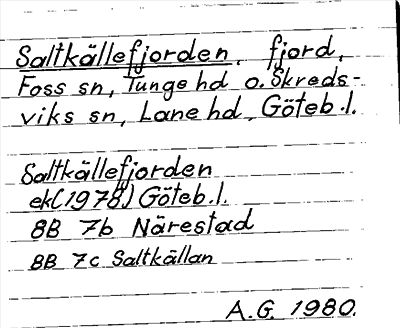 Saltkällefjorden, fjord,
Foss sn, Tunge hd o. Skreds-
viks sn, Lane hd, Göteb.l.
Saltkällefjorden
ek(1978) Göteb.l.
8B 7b Närestad
8B 7c Saltkällan
A.G. 1980.